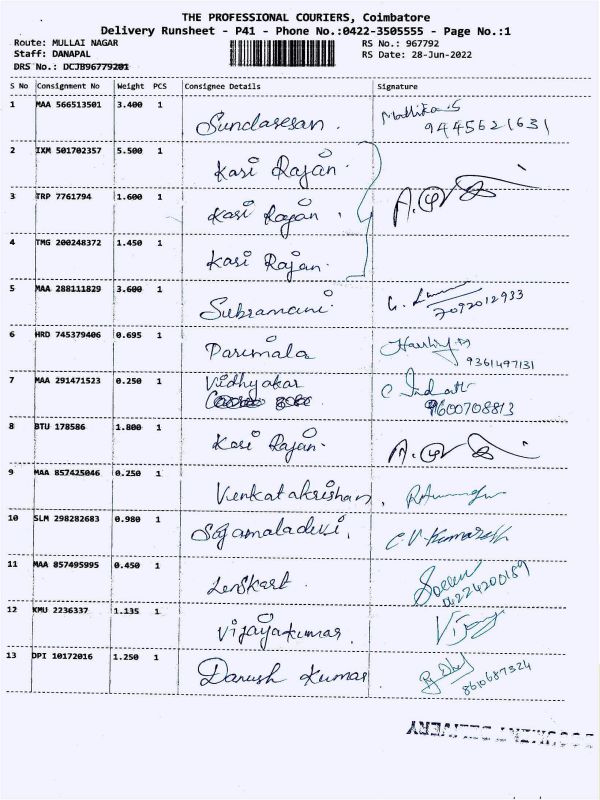 THE PROFESSIONAL COURIERS, Coimbatore
Delivery Runsheet - P41 - Phone No.:0422-3505555 - Page No.:1
Route: MULLAI NAGAR RS No.: 967792
Staff: DANAPAL RS Date: 28-Jun-2022
DRS No.: DCJB96779201
S No Consignment No Weight PCS Consignee Details Signature
1 MAA 566513501 3.400 1 Sundaresan. Madhika.S
9445621631
2 IXM 501702357 5.500 1 Kasi Rajan.
3 TRP 7761794 1.600 1 Kasi Rajan.
4 TMG 200248372 1.450 1 Kasi Rajan.
5 MAA 288111829 3.600 1 Subramani.
7092012933
6 HRD 745379406 0.695 1 Parimala
9361497131
7 MAA 291471523 0.250 1 Vidhyakar
9600708813
8 BTU 178586 1.800 1 Kasi Rajan.
9 MAA 857425046 0.250 1 Venkatakrishan.
10 SLM 298282683 0.980 1 Sojamaladevi. C.V. Kumaresh
11 MAA 857495995 0.450 1 Lenskart.
04224200189
12 KMU 2236337 1.135 1 Vijayakumar. Vijay
13 DPI 10172016 1.250 1 Darush Kumar
8610687324
DOCUMENT DELIVERY